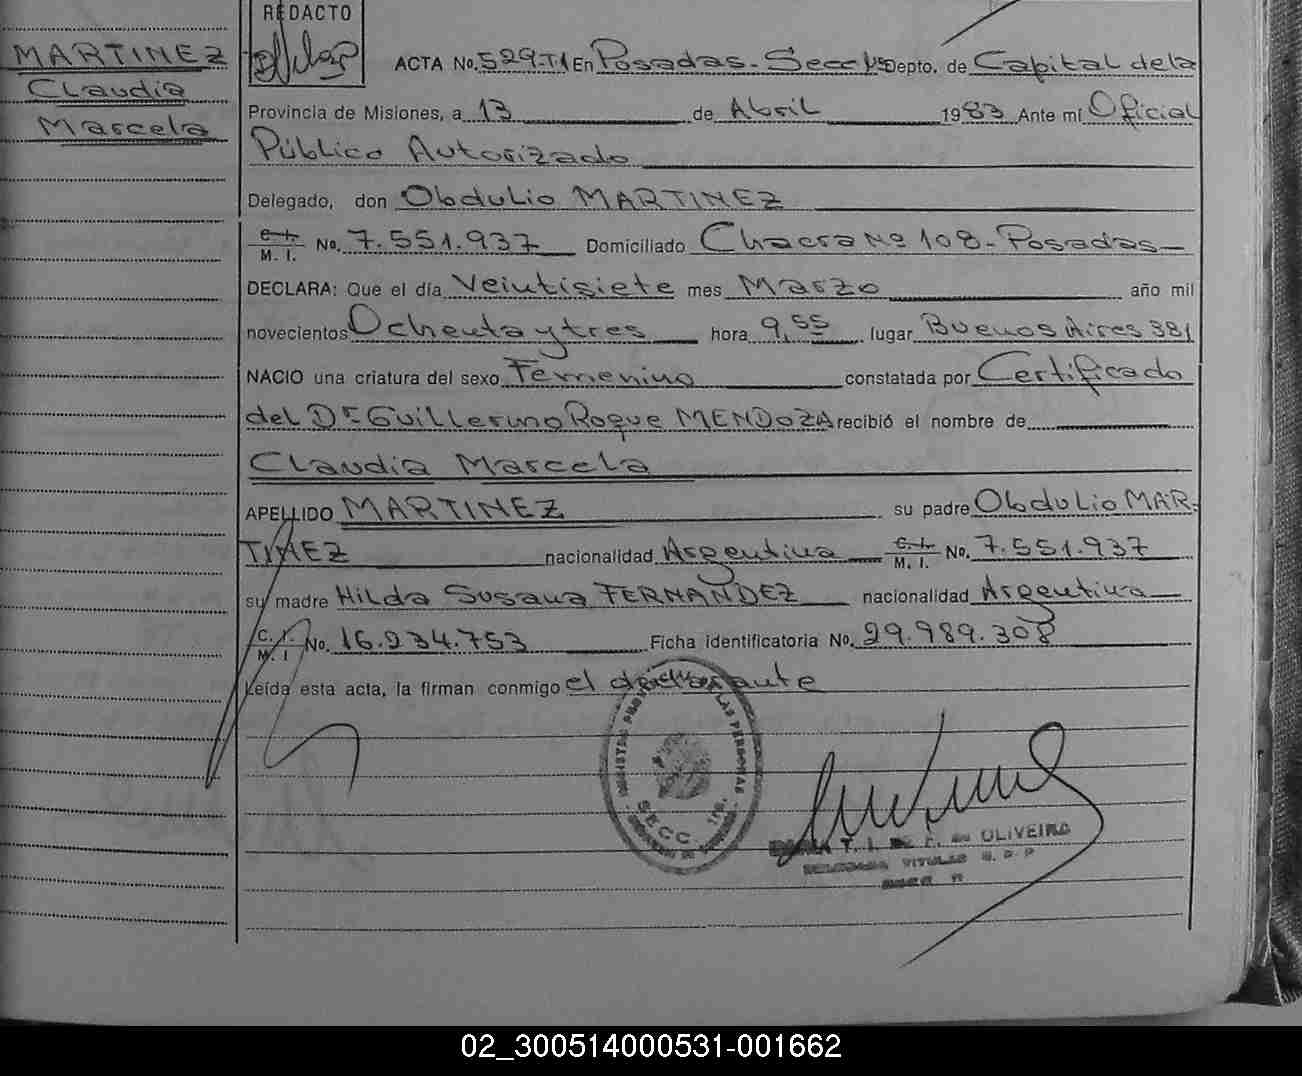 REDACTO
MARTINEZ
Claudia
Marcela
ACTA No. 529-T1 En Posadas- Secc 1ª Depto. de Capital de la
Provincia de Misiones, a 13 de Abril 1983 Ante mí Oficial
Público Autorizado
Delegado, don Obdulio MARTINEZ
C. I.
M. I. No. 7.551.937 Domiciliado Chacra Nº 108-Posadas-
DECLARA: Que el día Veintisiete mes Marzo año mil
novecientos Ochenta y tres hora 9,55 lugar Buenos Aires 381
NACIO una criatura del sexo Femenino constatada por Certificado
del Dr Guillermo Roque MENDOZA recibió el nombre de
Claudia Marcela
APELLIDO MARTINEZ su padre Obdulio MAR-
TINEZ nacionalidad Argentina C. I.
M. I. No. 7.551.937
su madre Hilda Susana FERNANDEZ nacionalidad Argentina
C. I.
M. I No. 16.234.753 Ficha identificatoria No. 29.989.308
Leída esta acta, la firman conmigo el declarante
LAS PERSONAS
SECC. 1ra.
T. I. DE F. de OLIVEIRA
DELEGADA TITULAR R. D. P
02_300514000531-001662